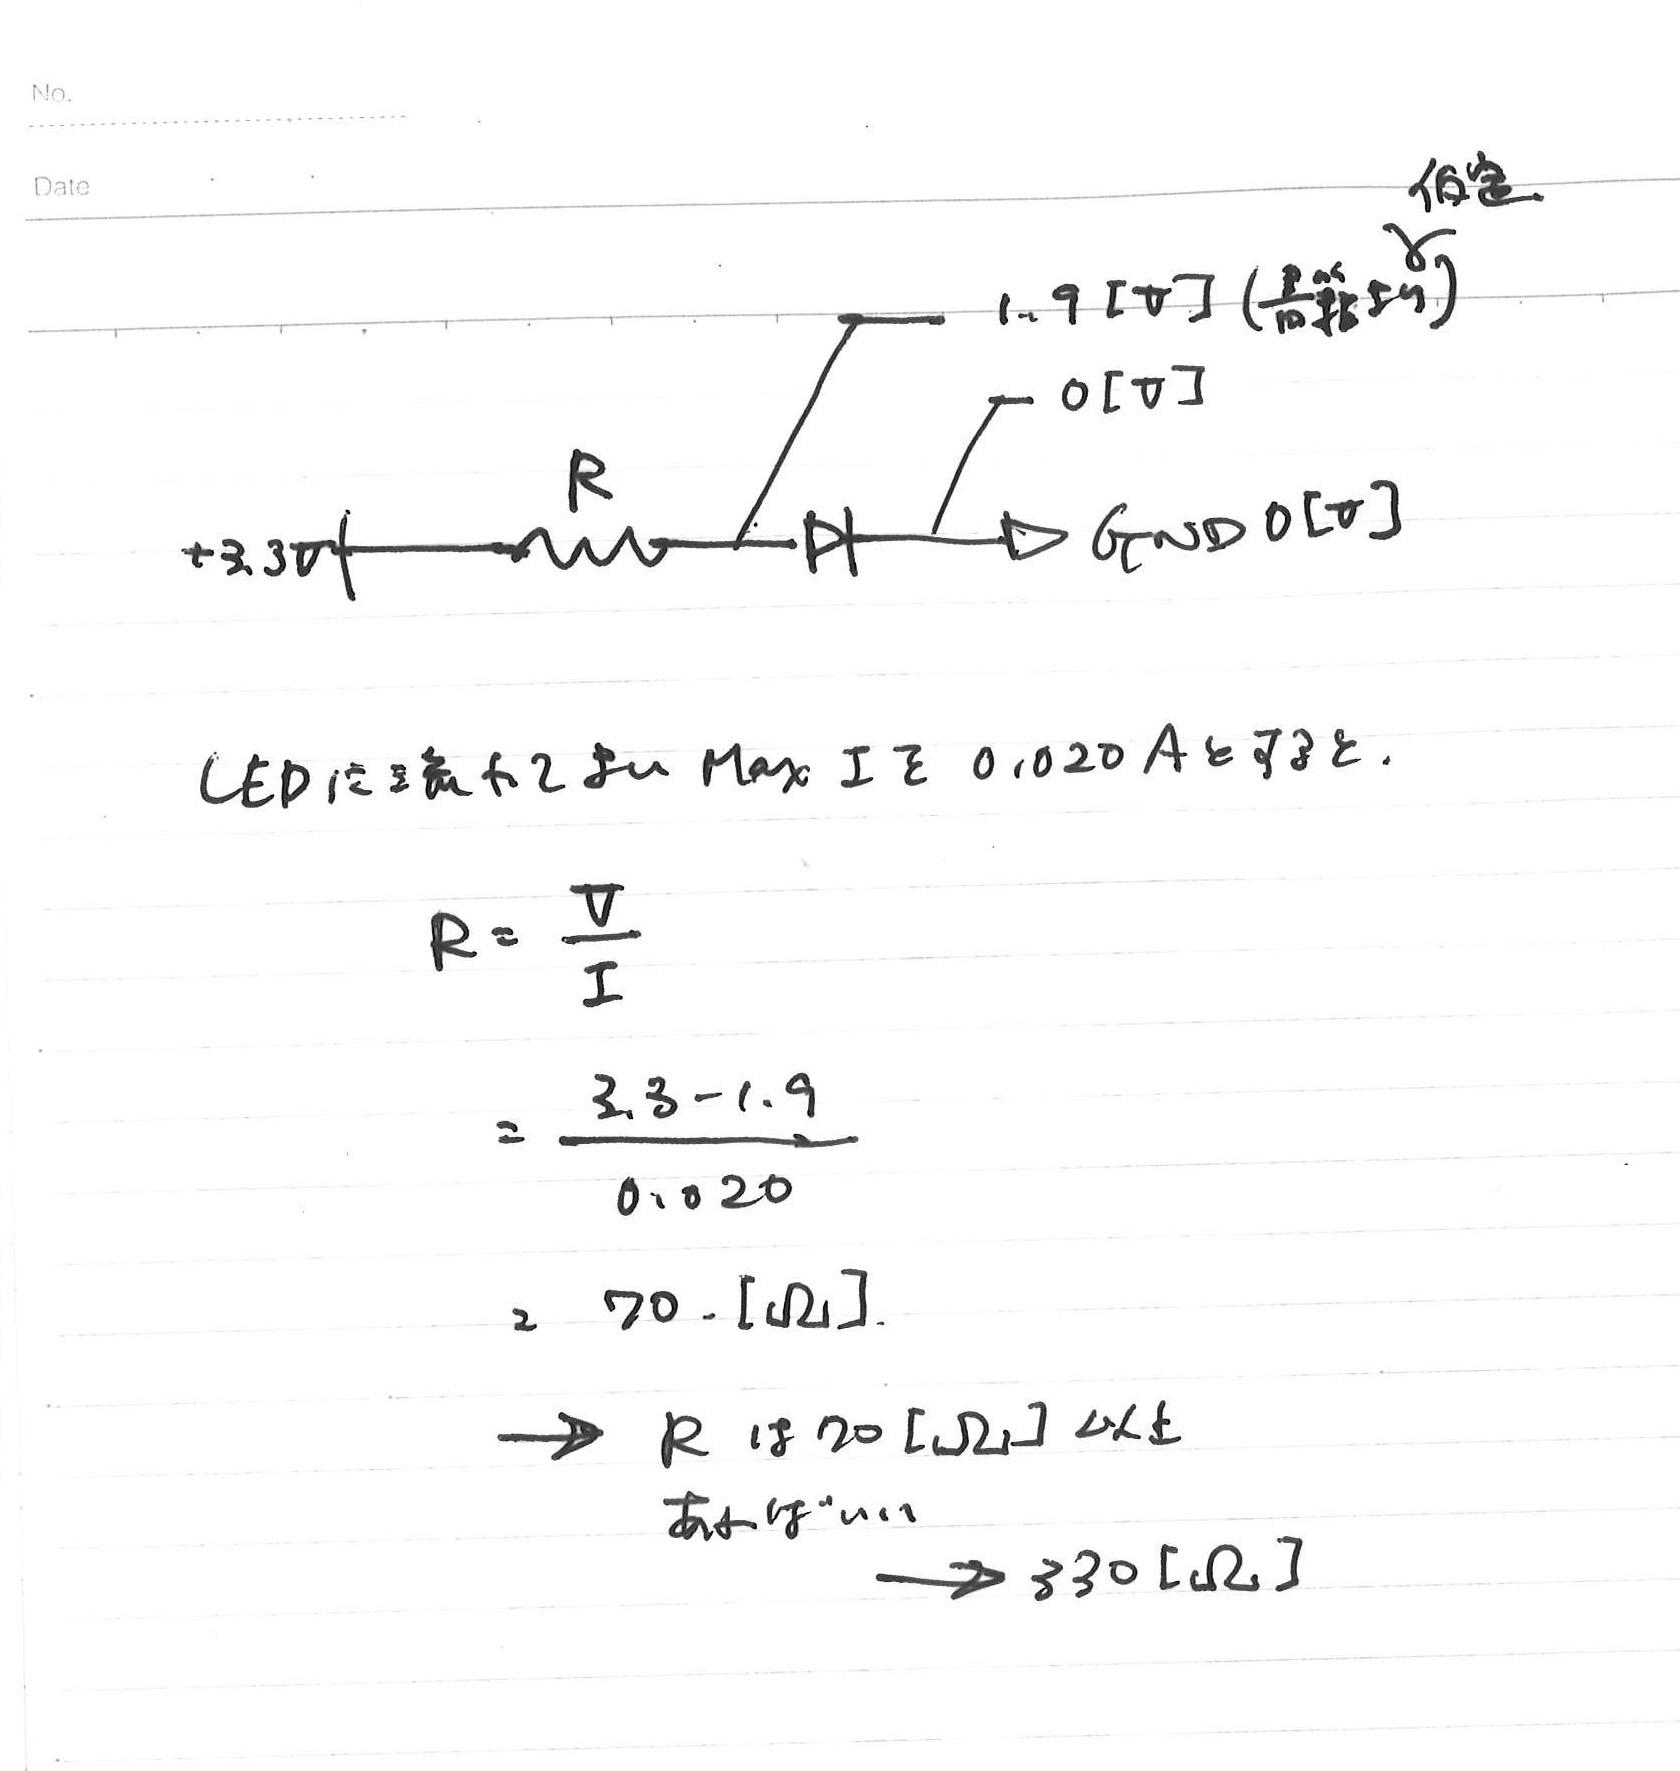 No.
Date
仮定
1.9[V](より)
0[V]
R
+3.3V
GND 0[V]
LEDに流れてよい Max Iを 0.020Aとすると.
R = V/I
= 3.3-1.9
0.020
= 70.[Ω].
→ Rは70[Ω]以上
あればいい
→ 330[Ω]